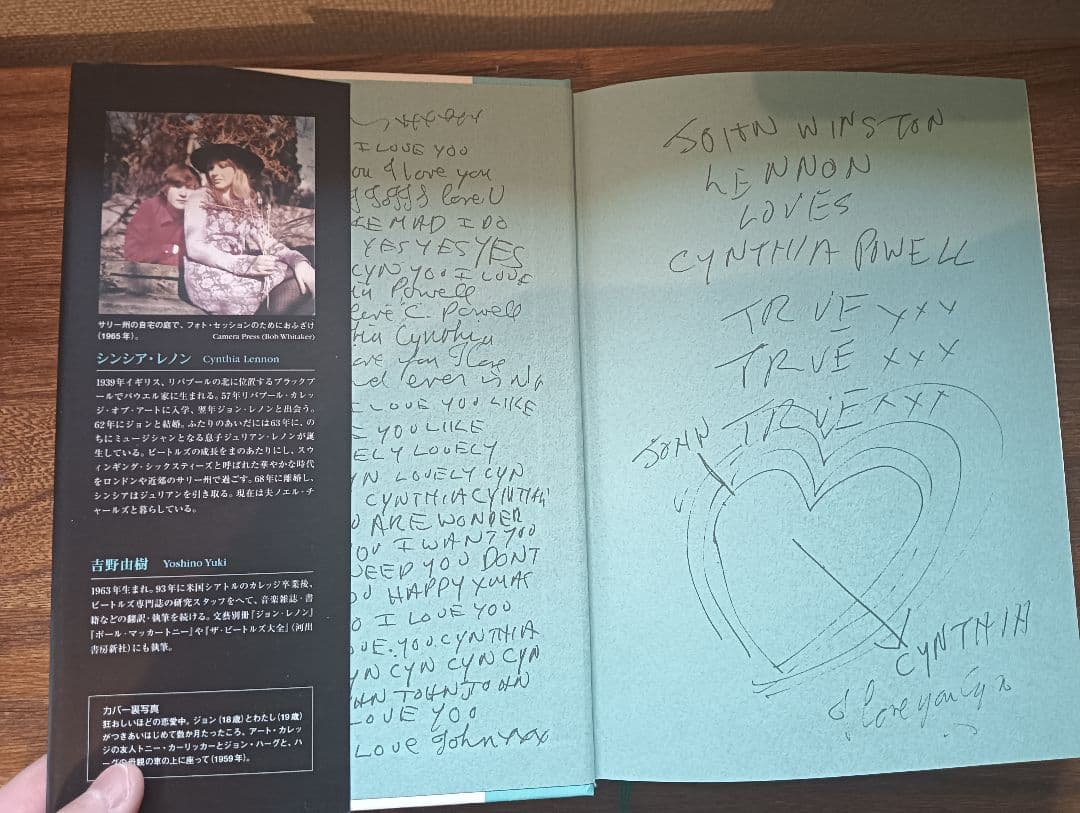 サリー州の自宅の庭で、フォト・セッションのためにおふざけ
(1965年)。
Camera Press (Bob Whitaker)
シンシア・レノン Cynthia Lennon
1939年イギリス、リバプールの北に位置するブラックプ
ールでパウエル家に生まれる。57年リバプール・カレッ
ジ・オブ・アートに入学、翌年ジョン・レノンと出会う。
62年にジョンと結婚。ふたりのあいだには63年に、の
ちにミュージシャンとなる息子ジュリアン・レノンが誕
生している。ビートルズの成長をまのあたりにし、スウ
ィンギング・シックスティーズと呼ばれた華やかな時代
をロンドンや近郊のサリー州で過ごす。68年に離婚し、
シンシアはジュリアンを引き取る。現在は夫ノエル・チ
ャールズと暮らしている。
吉野由樹 Yoshino Yuki
1963年生まれ。93年に米国シアトルのカレッジ卒業後、
ビートルズ専門誌の研究スタッフをへて、音楽雑誌・書
籍などの翻訳・執筆を続ける。文藝別冊『ジョン・レノン』
『ポール・マッカートニー』や『ザ・ビートルズ大全』(河出
書房新社)にも執筆。
カバー裏写真
狂おしいほどの恋愛中。ジョン(18歳)とわたし(19歳)
がつきあいはじめて数か月たったころ、アート・カレッ
ジの友人トニー・カーリッカーとジョン・ハーグと、ハ
ーグの母親の車の上に座って(1959年)。
I LOVE YOU
ou I love you
love U
MAD I DO
YES YES YES
CYN YOU I LOVE
Powell
C. Powell
Cynthia
ove you I love
ever is
I LOVE YOU LIKE
E YOU LIKE
ELY LOVELY
YN LOVELY CYN
CYNTHIA CYNTHIA
ARE WONDER
I WANT YOU
NEED YOU DONT
HAPPY XMAS
I LOVE YOU
OVE YOU CYNTHIA
YN CYN CYN CYN
HN JOHN JOHN
LOVE YOU
LOVE John xxx
JOHN WINSTON
LENNON
LOVES
CYNTHIA POWELL
TRUE xxx
TRUE xxx
TRUE xxx
JOHN
CYNTHIA
I love you Cyn